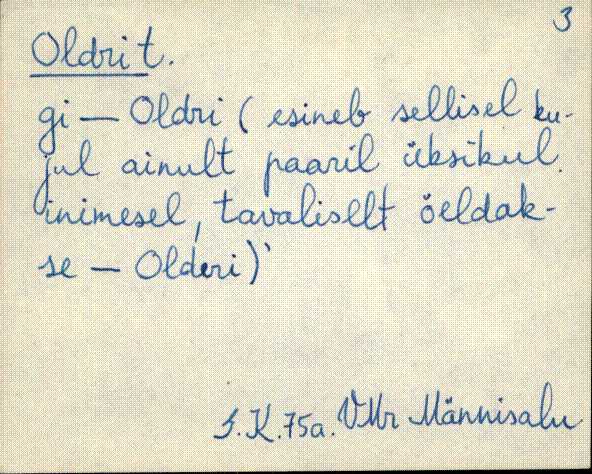 3
Oldrit.
gi — Oldri ( esineb sellisel ku-
jul ainult paaril üksikul
inimesel, tavaliselt öeldak-
se — Olderi)'
J.K.75a. VMr Männisalu